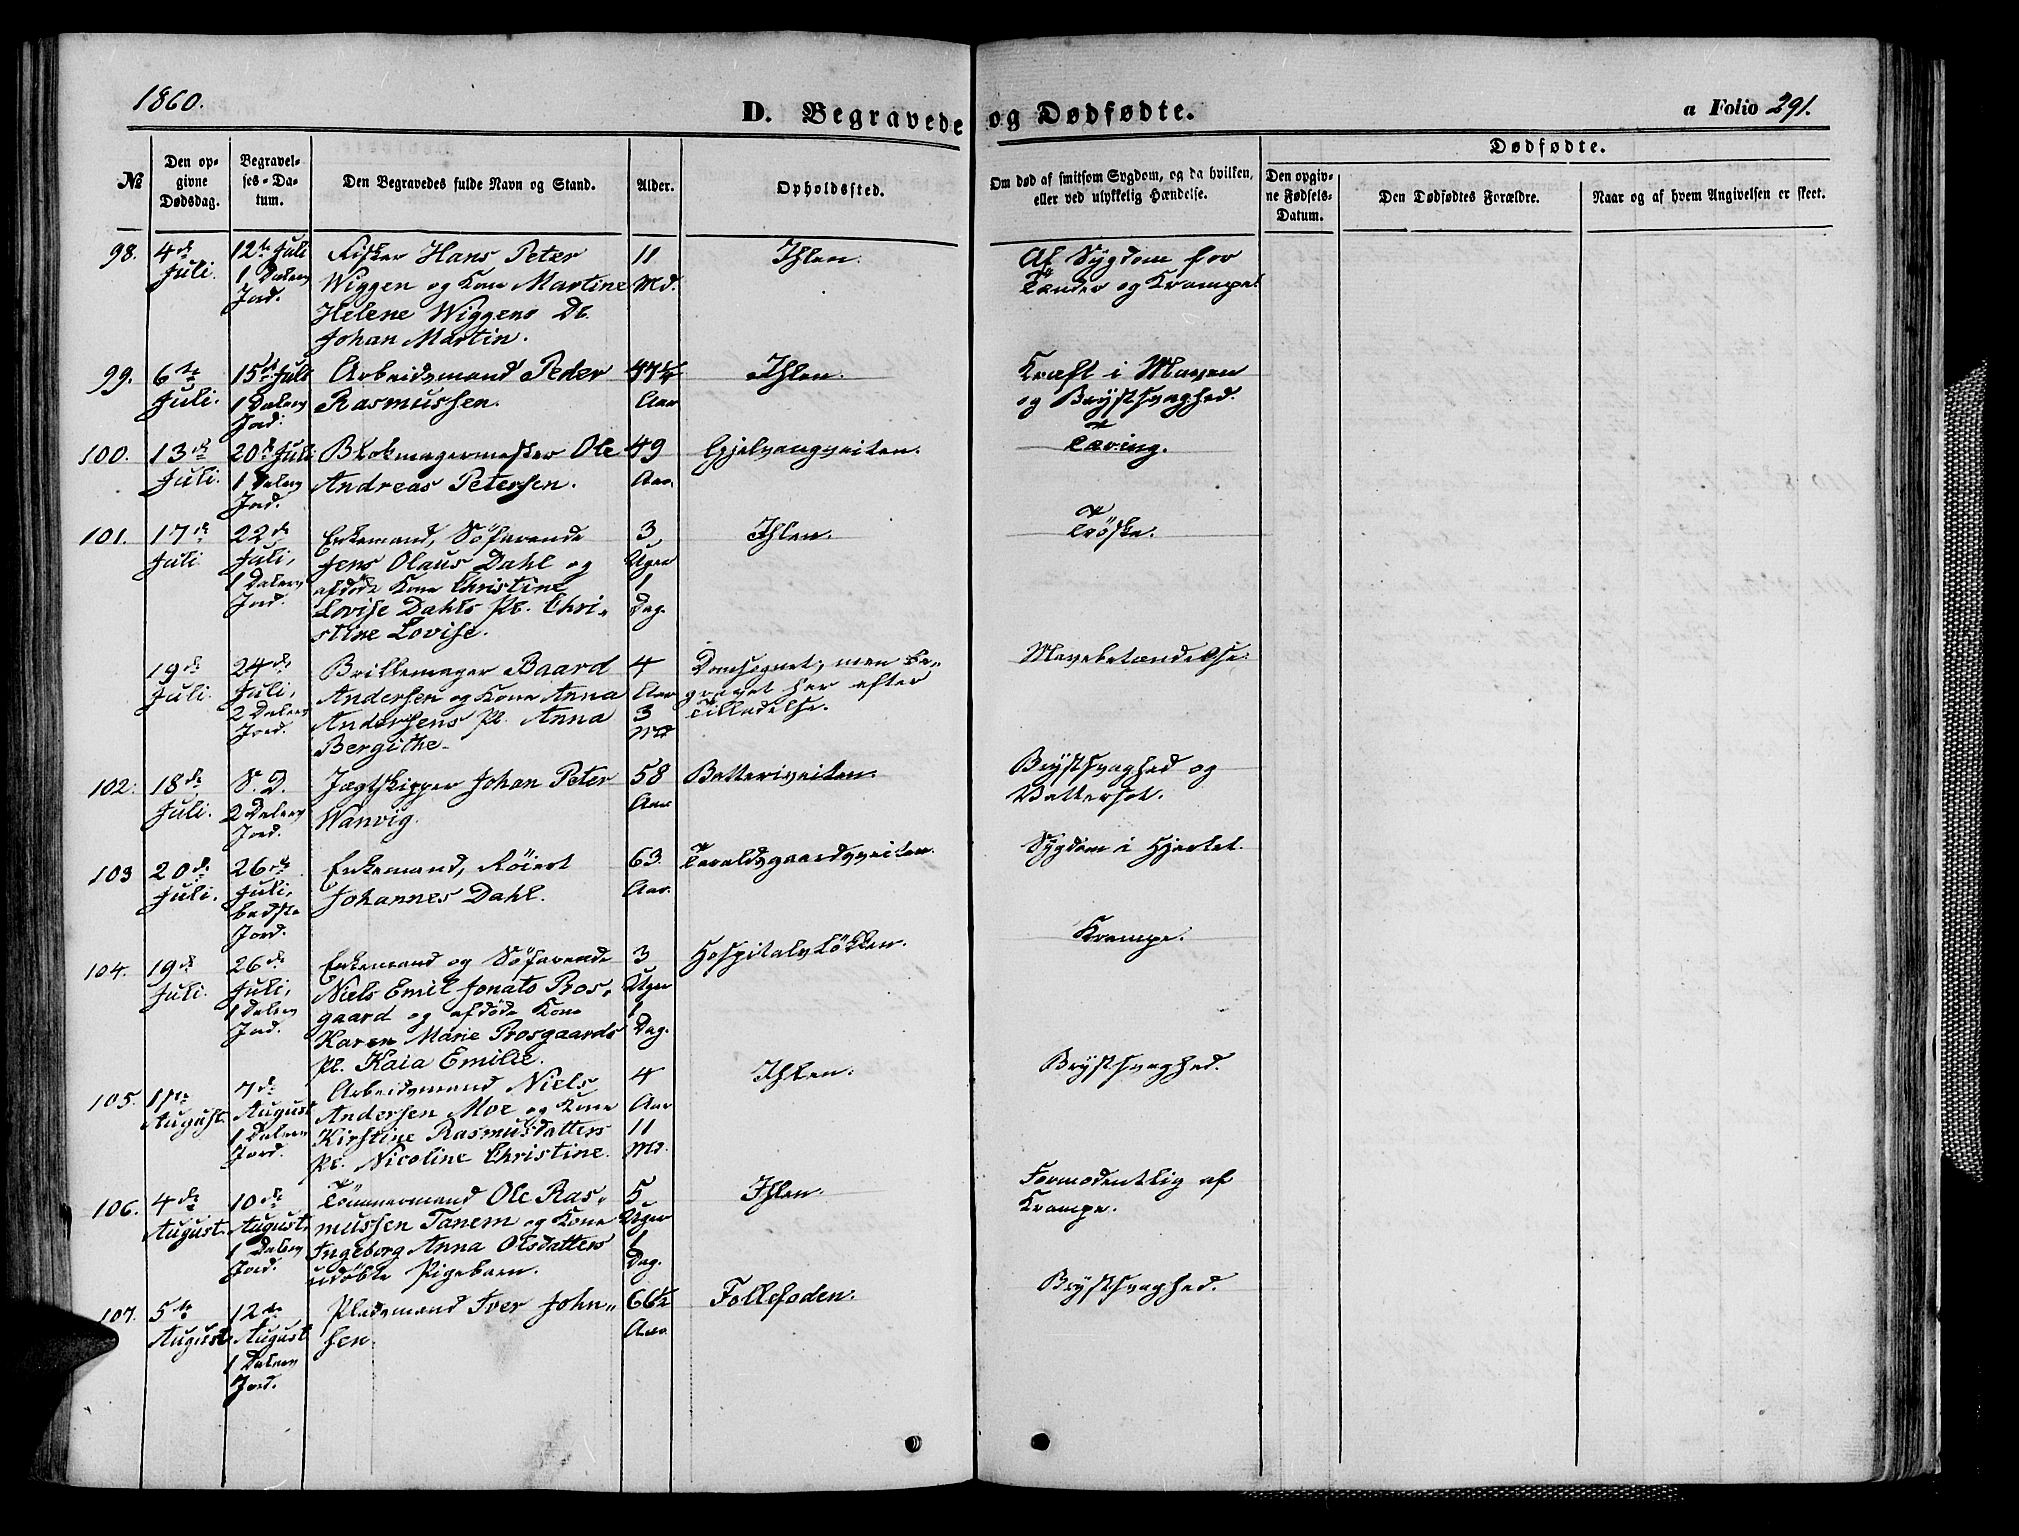 1860.
D. Begravede og Dødfødte.
a Folio 291.
№
Den opgivne Dødsdag.
Begravelses-Datum.
Den Begravedes fulde Navn og Stand.
Alder.
Opholdssted.
Om død af smitsom Sygdom, og da hvilken, eller ved ulykkelig Hændelse.
Dødfødte.
Den opgivne Fødsels-Datum.
Den Dødfødtes Forældre.
Naar og af hvem Angivelsen er skeet.
98. 4de 12te Juli Fisker Hans Peter 11 Ihlen. Af Sygdom for
Juli. 1 Dalers Wiggen og Kone Martine Md. Tænder og Krampe.
Jord. Helene Wiggens Db.
Johan Martin.
99. 6te 15de Juli Arbeidsmand Peder 47½ Ihlen. Kræft i Maven
Juli. 1 Dalers Rasmussen. Aar og Brystsvaghed.
Jord.
100. 13de 20de Juli Blokmagermester Ole 49 Gjelvangveiten. Tæring.
Juli. 1 Dalers Andreas Petersen. Aar.
Jord.
101. 17de 22de Enkemand, Söfarende 3 Ihlen. Tröske.
Juli Juli, Jens Olaus Dahl og Uger
1 Dalers afdöde Kone Christine 1
Jord. Lovise Dahls Pb. Chri- Dag.
stine Lovise.
19de 24de Brillemager Baard 4 Domsognet, men be- Mavebetændelse.
Juli. Juli, Andersen og Kone Anna Aar gravet her efter
2 Dalers Andersens Pb. Anna 3 Tilladelse.
Jord. Bergithe. Md
102. 18de S. D. Jægtskipper Johan Peter 58 Batteriveiten. Brystsvaghed og
Juli. 2 Dalers Wanvig. Aar Vattersot.
Jord.
103 20de 26de Enkemand, Röiert 63 Taraldsgaardsveiten. Sygdom i Hjertet.
Juli. Juli, Johannes Dahl. Aar.
bedste
Jord.
104. 19de 26de Enkemand og Söfarende 3 Hospitalslökken. Krampe.
Juli. Juli, Niels Emil Jonato Ros- Uger
1 Dalers gaard og afdöde Kone 1
Jord. Karen Marie Rosgaards Dag.
Pb. Kaia Emilie.
105. 1ste 7de Arbeidsmand Niels 4 Ihlen. Brystsvaghed.
August. August Andersen Moe og Kone Aar
1 Dalers Kirstine Rasmusdatters 11
Jord. Pb. Nicoline Christine. Md.
106. 4de 10de Tömmermand Ole Ras- 5 Ihlen. Formodentlig af
August. August. mussen Tanem og Kone Uger Krampe.
1 Dalers Ingeborg Anna Olsdatters 1
Jord. udöbte Pigebarn. Dag.
107. 5te 12te Pladsmand Iver John- 66½ Follesoden. Brystsvaghed.
August August sen. Aar
1 Dalers
Jord.